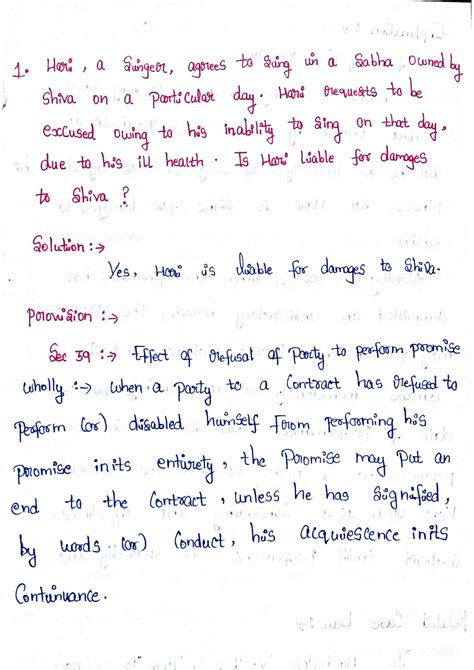 1. Hari, a Singeor, agrees to sing in a Sabha owned by
Shiva on a Particular day. Hari requests to be
excused owing to his inability to sing on that day,
due to his ill health. Is Hari liable for damages
to Shiva ?
Solution :->
Yes, Hari is liable for damages to Shiva.
Provision :->
Sec 39 :-> Effect of refusal of Party to perform promise
wholly :-> when a party to a Contract has refused to
perform (or) disabled himself from performing his
promise in its entirety, the Promise may Put an
end to the Contract, unless he has signified,
by words (or) Conduct, his acquiescence in its
Continuance.